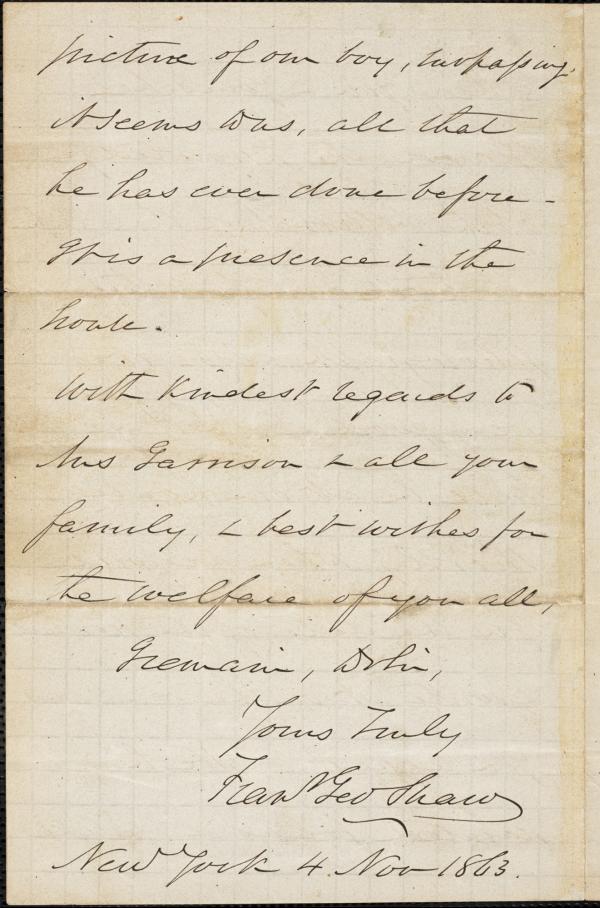 picture of our boy, surpassing,
it seems to us, all that
he has ever done before -
It is a presence in the
house.
With kindest regards to
Mrs Garrison & all your
family, & best wishes for
the welfare of you all,
I remain, Dr Sir,
Yours truly
Fran Geo Shaw
New York 4 Nov 1863.